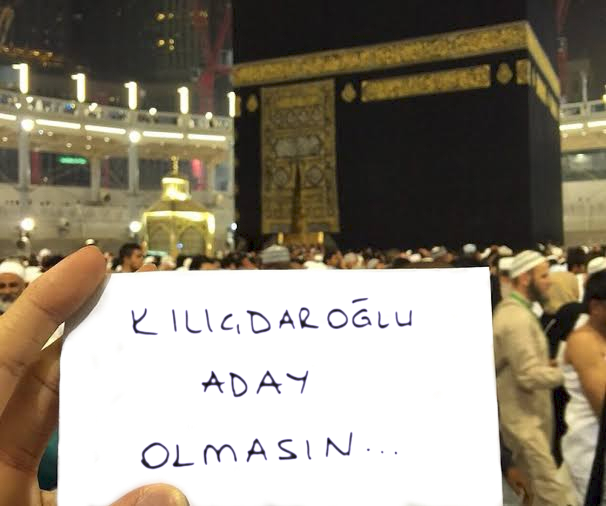 KILIÇDAROĞLU
ADAY
OLMASIN...